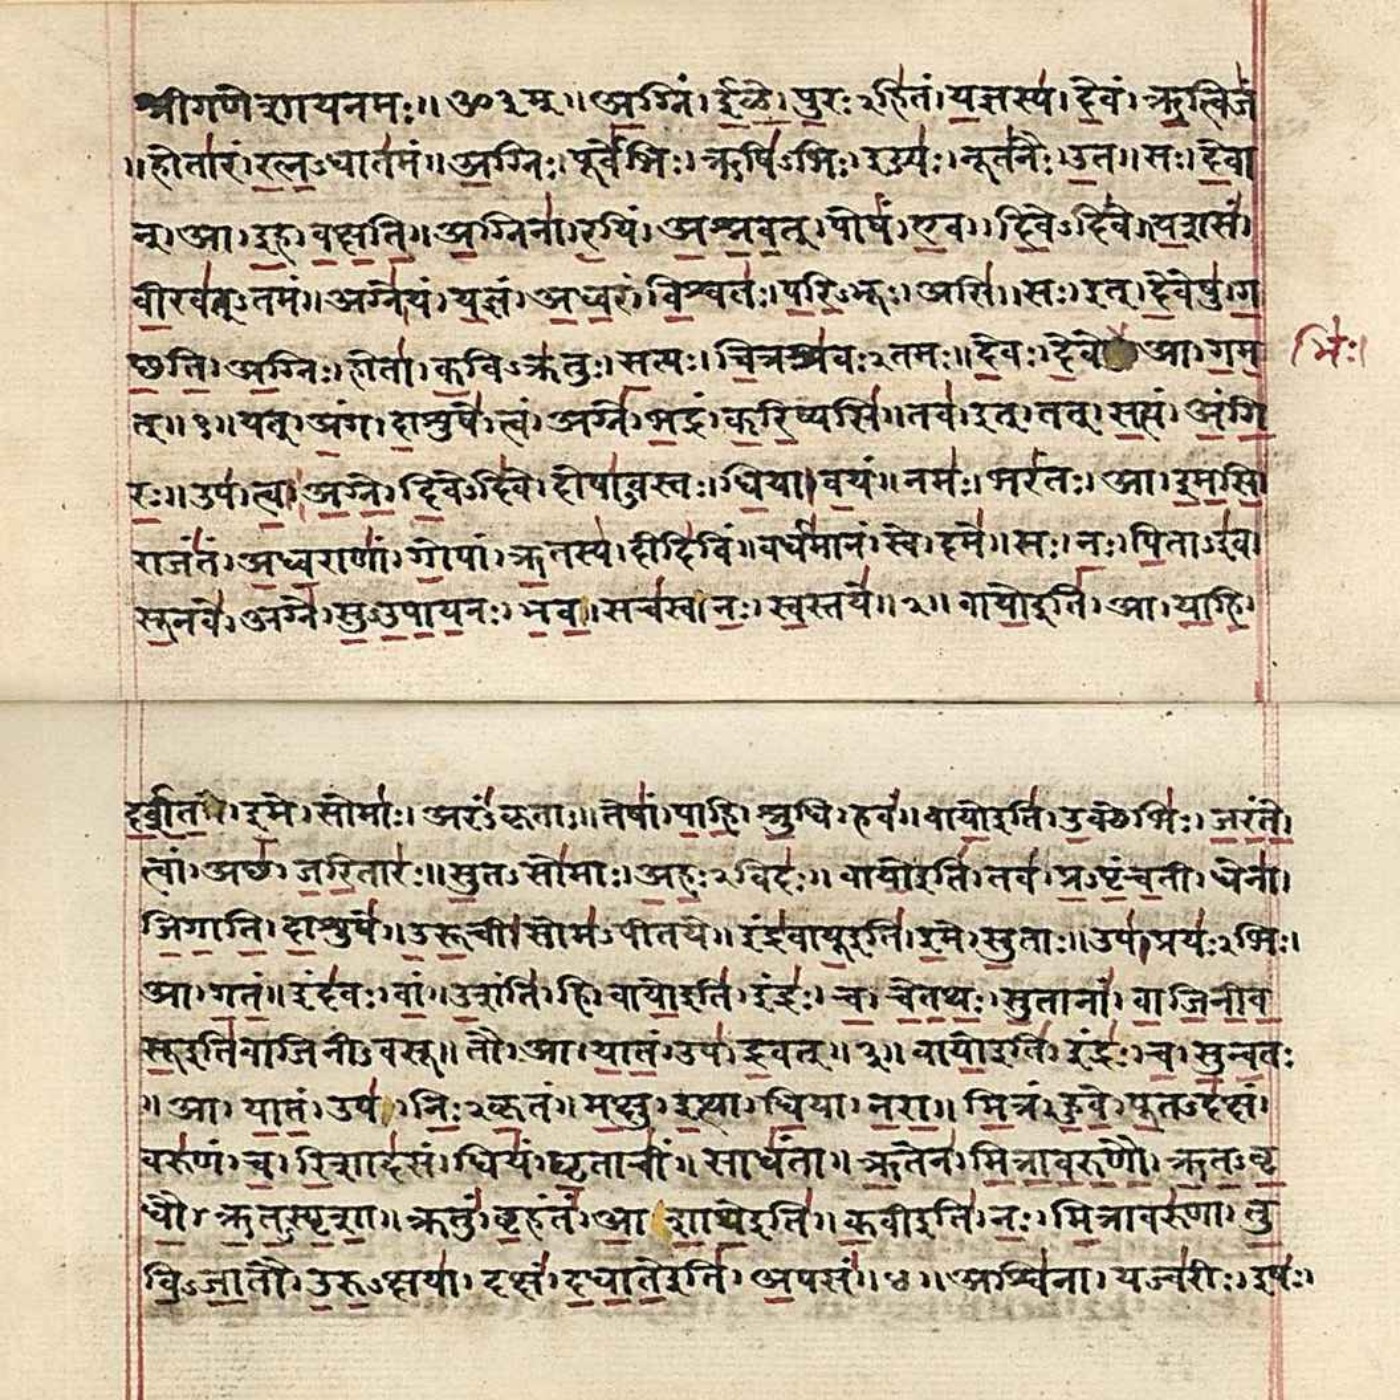 श्रीगणेशायनमः॥ ॐ३म्॥ अग्निं। ईळे। पुरःऽहितं। यज्ञस्य। देवं। ऋत्विजं
॥होतारं। रत्नऽधातमं॥ अग्निः। पूर्वेभिः। ऋषिऽभिः। ईड्यः। नूतनैः। उत॥ सः। देवा
न्। आ। इह। वक्षति॥ अग्निना। रयिं। अश्नवत्। पोषं। एव। दिवेऽदिवे॥ यशसं।
वीरवत्ऽतमं॥ अग्ने। यं। यज्ञं। अध्वरं। विश्वतः। परिऽभूः। असि॥ सः। इत्। देवेषु। ग
छति। अग्निः। होता। कविऽक्रतुः। सत्यः। चित्रश्रवःऽतमः॥ देवः। देवे आ। गम
भिः।
त्॥१॥ यत्। अंग। दाशुषे। त्वं। अग्ने। भद्रं। करिष्यसि॥ तव। इत्। तत्। सत्यं। अंगि
रः॥ उप। त्वा। अग्ने। दिवेऽदिवे। दोषाऽवस्तः। धिया। वयं॥ नमः। भरंतः। आ। इमसि
राजंतं। अध्वराणां। गोपां। ऋतस्य। दीदिविं॥ वर्धमानं। स्वे। दमे॥ सः। नः। पिताऽइव।
सूनवे। अग्ने। सुऽउपायनः। भव॥ सचस्व। नः। स्वस्तये॥२॥ वायोइति। आ। याहि।
दर्शत। इमे। सोमाः। अरंऽकृताः॥ तेषां। पाहि। श्रुधि। हवं॥ वायोइति। उक्थेभिः। जरंते।
त्वां। अछ। जरितारः॥ सुतऽसोमाः। अहःऽविदः॥ वायोइति। तव। प्रऽपृंचती। धेना।
जिगाति। दाशुषे॥ उरूची। सोमऽपीतये॥ इंद्रवायूइति। इमे। सुताः॥ उप। प्रयःऽभिः।
आ। गतं॥ इंदवः। वां। उशंति। हि। वायोइति। इंद्रः। च। चेतथः। सुतानां। वाजिनीव
सूइतिवाजिनीऽवसू॥ तौ। आ। यातं। उप। द्रवत्॥३॥ वायोइति। इंद्रः। च। सुन्वतः
॥ आ। यातं। उप। निःऽकृतं॥ मक्षु। इत्था। धिया। नरा॥ मित्रं। हुवे। पूतऽदक्षं।
वरुणं। च। रिशादसं। धियं। घृताचीं। साधंता॥ ऋतेन। मित्रावरुणौ। ऋतऽवृ
धौ। ऋतऽस्पृशा॥ क्रतुं। बृहंतं। आ शाथेइति॥ कवीइति। नः। मित्रावरुणा। तु
विऽजातौ। उरुऽक्षया। दक्षं। दधातेइति। अपसं॥४॥ अश्विना। यज्वरीः। इषः।